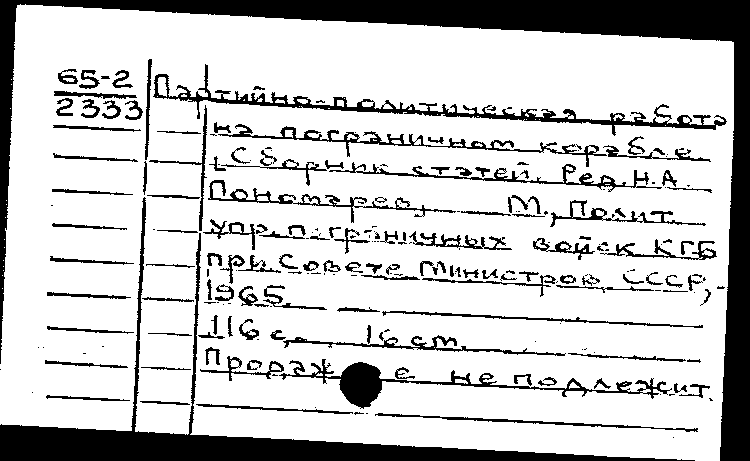 65-2
2333
Партийно-политическая работа
на пограничном корабле.
[Сборник статей. Ред. Н.А.
Пономарев, М., Полит.
упр. пограничных войск КГБ
при Совете Министров СССР,-
1965.
116 с. 16 см.
Продаже не подлежит.